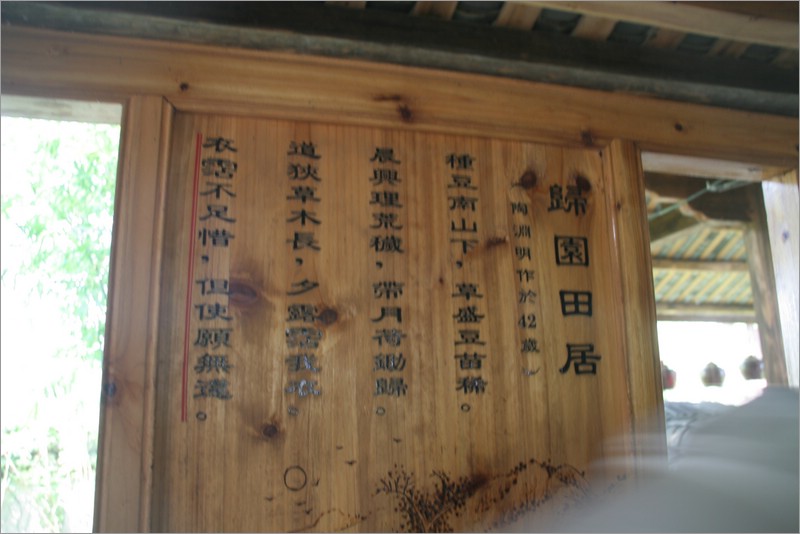 歸園田居
(陶淵明作於42歲)
種豆南山下，草盛豆苗稀。
晨興理荒穢，帶月荷鋤歸。
道狹草木長，夕露霑我衣。
衣霑不足惜，但使願無違。